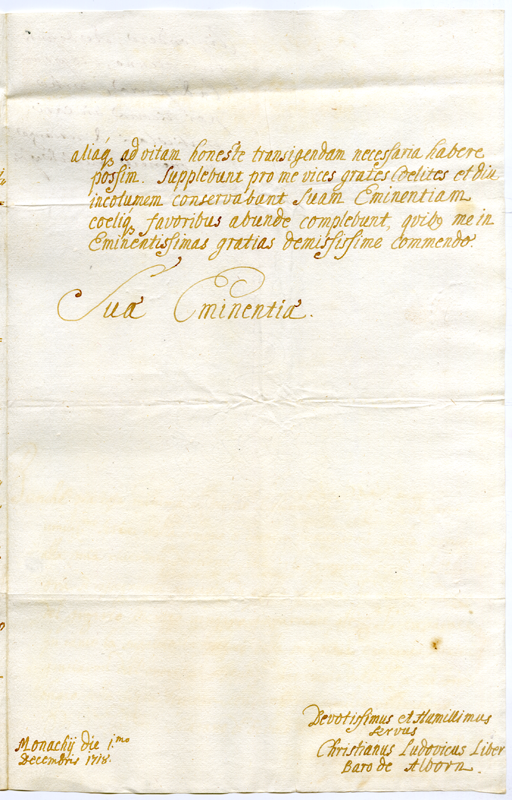 aliáq, ad vitam honeste transigendam necessaria habere
possim. Supplebunt pro me vices grates Coelites et diu
incolumem conservabunt Suam Eminentiam
coeliq, favoribus abunde complebunt, quib9 me in
Eminentissimas gratias demississime commendo.
Suæ Eminentiæ.
Monachij die 1.mo
Decembris 1718.
Devotissimus et Humillimus
servus
Christianus Ludovicus Liber
Baro de Alborn.